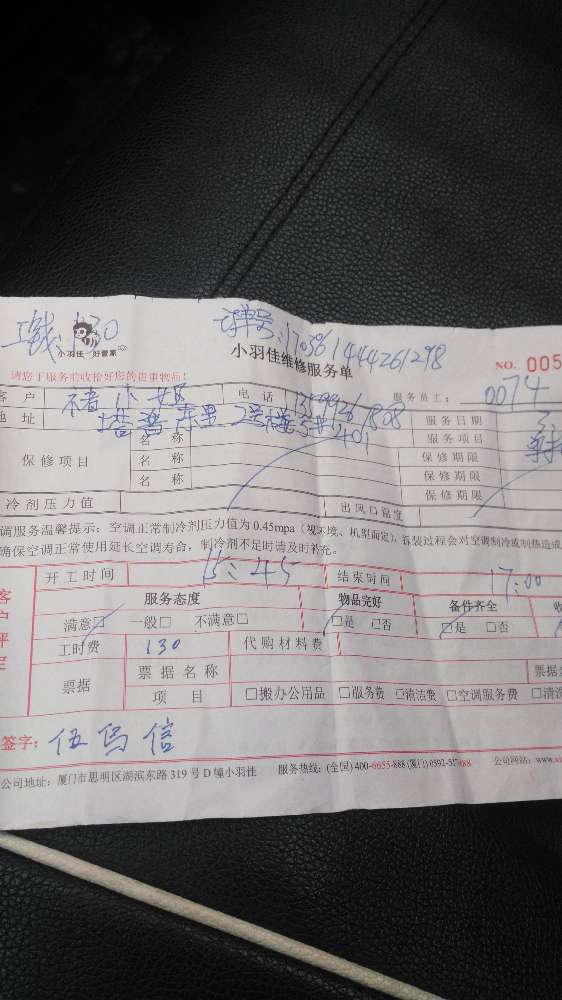 工钱:130 订单号:170361444261298
小羽佳—好管家
小羽佳维修服务单 NO. 005
请您于服务前收拾好您的贵重物品!
客 户 小姐 电 话 服务员工: 0074
地 址 服务日期
保修项目 名 称 服务项目
名 称 保修期限
名 称 保修期限
保修期限
冷剂压力值 出风口温度
调服务温馨提示:空调正常制冷剂压力值为 0.45mpa (视环境、机型而定),拆装过程会对空调制冷或制热造成
确保空调正常使用延长空调寿命,制冷剂不足时请及时补充。
开工时间 15:45 结束时间 17:00
客户评定 服务态度 物品完好 备件齐全
满意□ 一般□ 不满意□ □是 □否 □是 □否
工时费 130 代购材料费
票据 票 据 名 称 票据
项 目 □搬办公用品 □服务费 □清洁费 □空调服务费 □清洗
签字: 伍 信
公司地址:厦门市思明区湖滨东路 319 号 D 幢小羽佳 服务热线:(全国)400-6655-888(厦门)0592-5 公司网站:www.